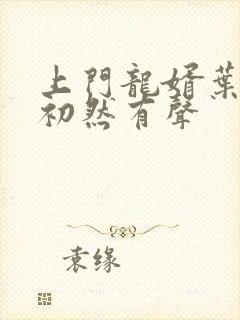 上門龍婿葉
初然有聲
袁缘